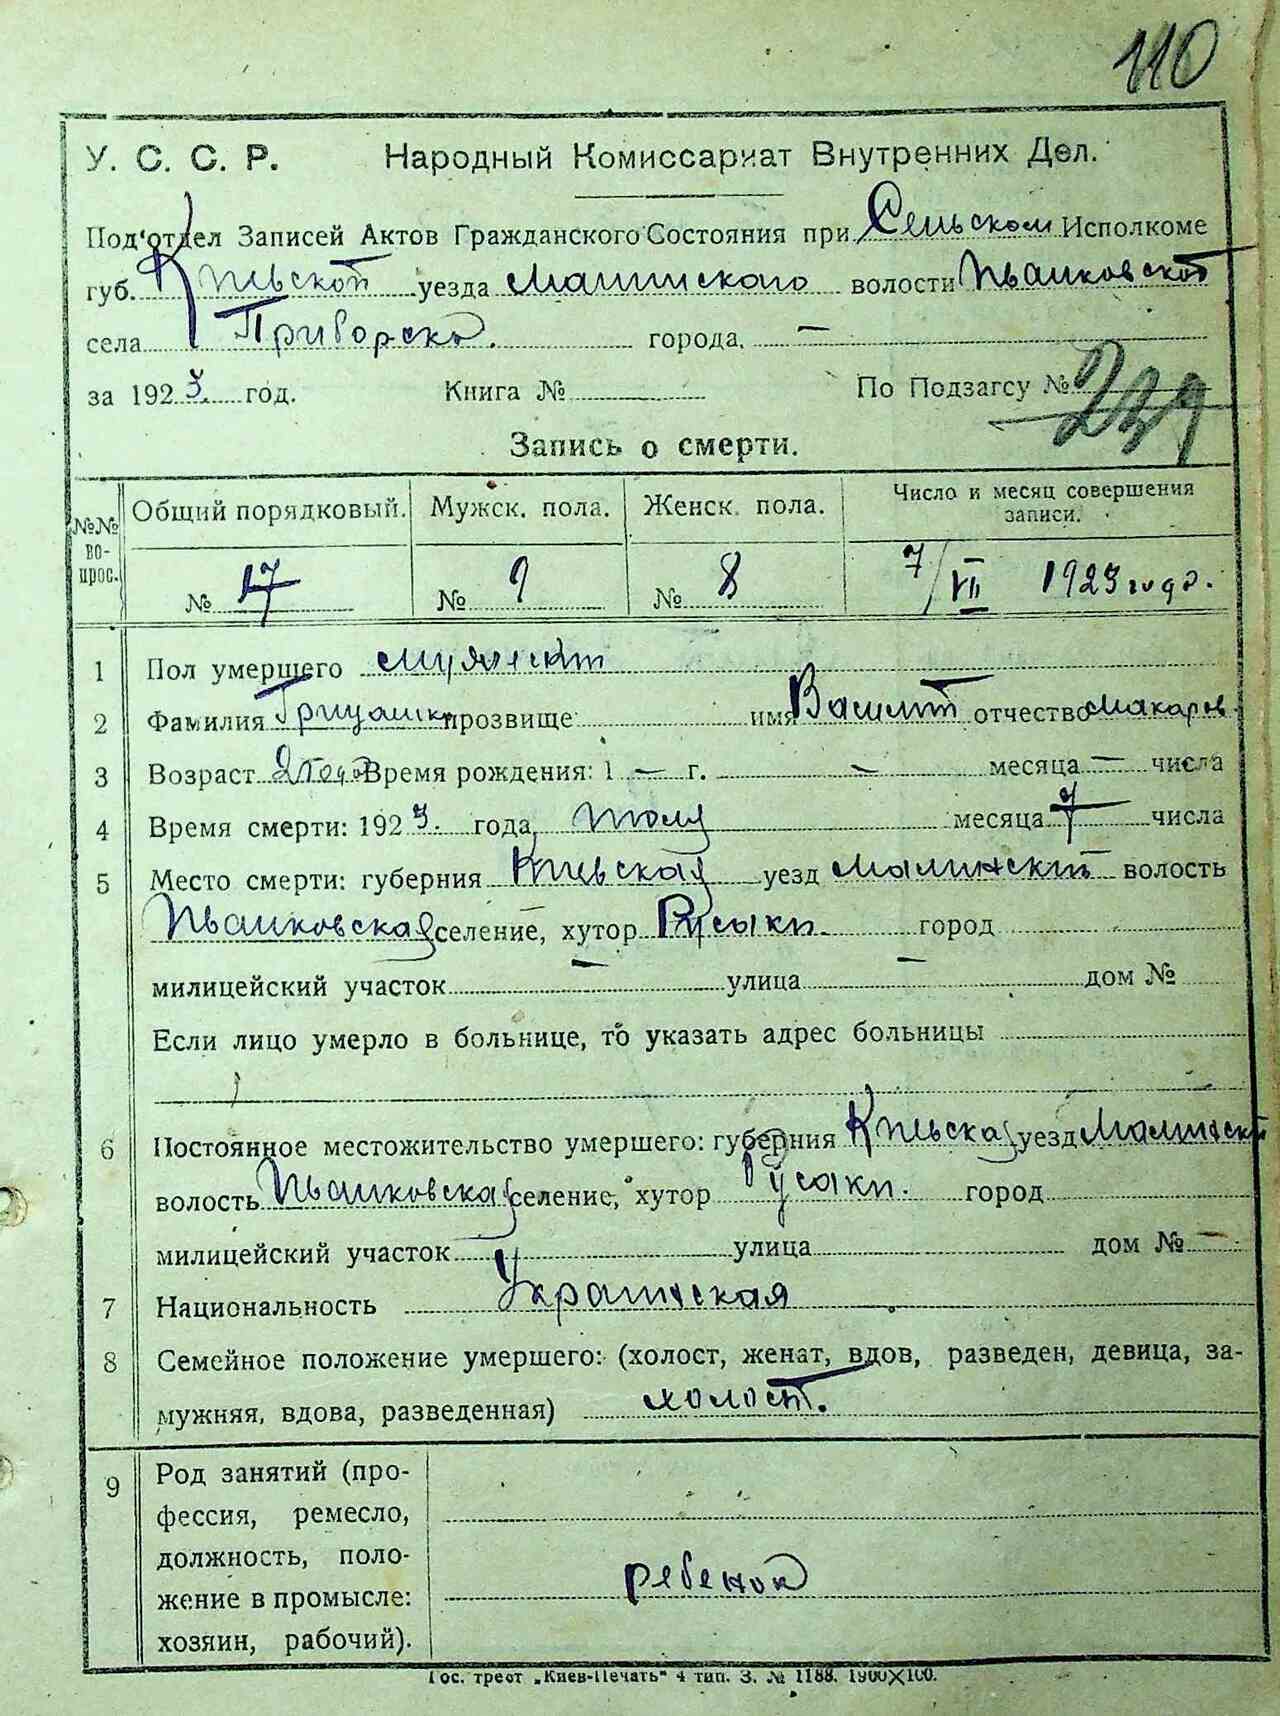 110
У. С. С. Р. Народный Комиссариат Внутренних Дел.
Под'отдел Записей Актов Гражданского Состояния при Сельском Исполкоме
губ. Киевской уезда Малинского волости Иванковской
села Приборска. города. —
за 1923. год. Книга № По Подзагсу № 239
Запись о смерти.
№№ вопрос. Общий порядковый. Мужск. пола. Женск. пола. Число и месяц совершения записи.
№ 17 № 9 № 8 7/VII 1923 года.
1 Пол умершего мужской
2 Фамилия прозвище имя Василий отчество Макаров.
3 Возраст 2 года Время рождения: 1 — г. — месяца — числа
4 Время смерти: 1923. года, июля месяца 7 числа
5 Место смерти: губерния Киевская уезд Малинский волость
Иванковская селение, хутор Русаки. город
милицейский участок — улица — дом №
Если лицо умерло в больнице, то указать адрес больницы
6 Постоянное местожительство умершего: губерния Киевская уезд Малинский
волость Иванковская селение, хутор Русаки. город
милицейский участок улица дом № —
7 Национальность Украинская
8 Семейное положение умершего: (холост, женат, вдов, разведен, девица, за-
мужняя, вдова, разведенная) холост.
9 Род занятий (про-
фессия, ремесло,
должность, поло-
жение в промысле:
хозяин, рабочий).
ребенок
Гос. трест „Киев-Печать" 4 тип. З. № 1188. 1900×100.